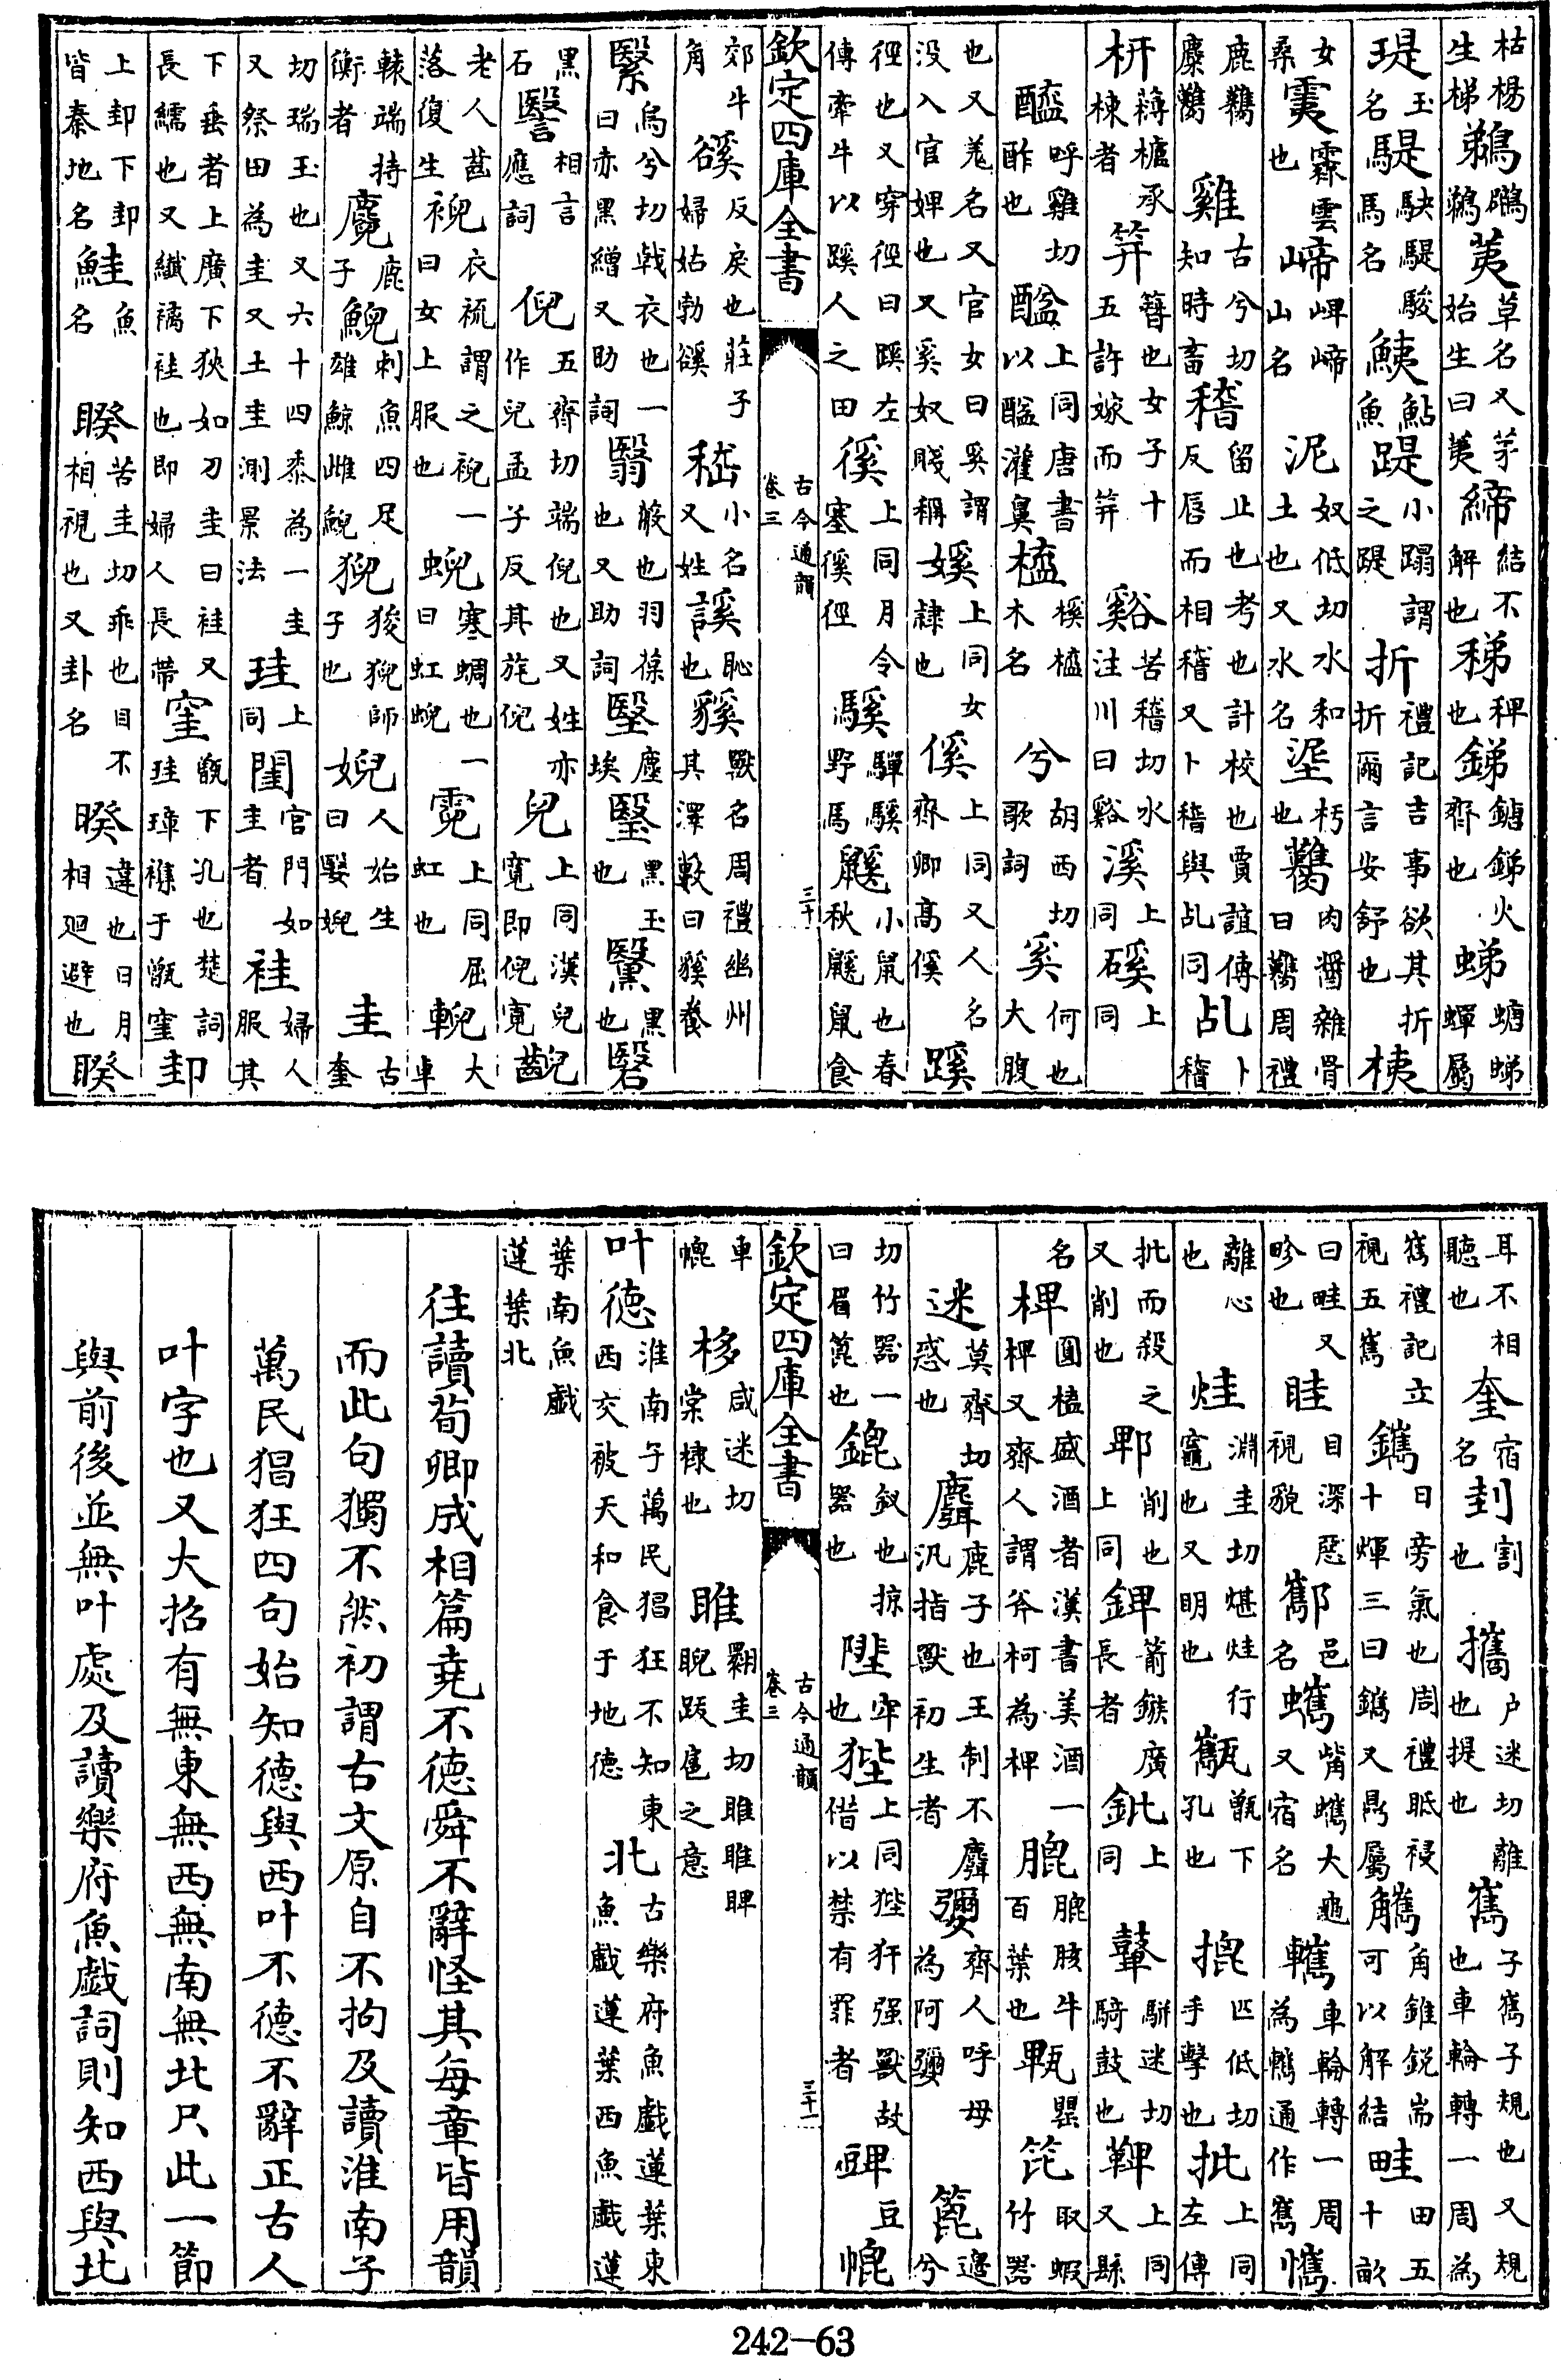 枯楊生梯 鵜 荑 草名又茅始生曰荑 締 結不解也 稊 稗也 銻 鎕銻火齊也
瑅 玉名 騠 駃騠駿馬名 鮧 鮎魚 踶 小蹋謂之踶 折 禮記吉事欲其折折爾言安舒也 桋
女桑 霖雲也 崹 崥崹山名 泥 奴低切水和土也又水名 埿 圬也 臡 肉醬雜骨曰臡周禮
鹿臡麋臡 雞 古兮切知時畜 稽 留止也考也計校也賈誼傳反唇而相稽又卜稽與乩同 乩 卜稽
枅 欂櫨承棟者 笄 簪也女子十五許嫁而笄 谿 苦稽切水注川曰谿 溪 上同 磎 上同
醯 呼雞切酢也 醯 上同唐書以醯灌鼻 榼 榽榼木名 兮 胡西切歌詞 奚 何也大腹
也又羗名又官女曰奚謂没入官婢也又奚奴賤稱 嫨 上同女隸也 傒 上同又人名齊卿高傒 蹊
徑也又穿徑曰蹊左傳牽牛以蹊人之田 徯 上同月令塞徯徑 騱 驒騱野馬 鼷 小鼠也春秋鼷鼠食
欽定四庫全書 古今通韻 卷三 三十
郊牛角 豀 反戾也莊子婦姑勃豀 嵇 小名又姓 謑 恥也 貕 獸名周禮幽州其澤藪曰貕養
繄 烏兮切戟衣也一曰亦黑繒又助詞 翳 蔽也羽葆也又助詞 塵埃 瑿 黑玉也 黳 黑也 硻
黑石 相言應詞 倪 五齊切端倪也又姓亦作兒孟子反其旄倪 兒 上同漢兒寛即倪寛 齯
老人齒落復生 䘽 衣裗謂之䘽一曰女上服也 蜺 寒蜩也一曰虹蜺 霓 上同屈虹也 輗 大車
轅端持衡者 麑 鹿子 鯢 刺魚四足雄鯨雌鯢 猊 狻猊師子也 婗 人始生曰嫛婗 圭 古奎
切瑞玉也又六十四黍為一圭又祭田為圭又土圭測景法 珪 上同 閨 官門如圭者 袿 婦人服其
下垂者上廣下狹如刀圭曰袿又長繻也又纖襦袿也即婦人長帶 窐 甑下孔也楚詞珪璋襍于甑窐 邽
上邽下邽皆秦地名 鮭 魚名 睽 苦圭切乖也目不相視也又卦名 暌 違也日月相廻避也 聧
耳不相聽也 奎 宿名 刲 割也 攜 户迷切離也提也 巂 子巂子規也又規也車輪轉一周為
巂禮記立視五巂 鑴 日旁氣也周禮眡祲十煇三曰鑴又鼎屬 觿 角錐鋭耑可以解結 畦 田五十畝
曰畦又畛也 眭 目深惡視貌 酅 邑名 蠵 觜蠵大龜又宿名 轊 車輪轉一周為轊通作巂 㒞
離心也 烓 淵圭切煁烓行竈也又明也 甑下孔也 㨢 匹低切手擊也 批 上同左傳
批而殺之又削也 㔥 削也上同 錍 箭鏃廣長者 鈚 上同 鼙 駢迷切騎鼓也 鞞 上同又縣
名 椑 圓榼盛酒者漢書美酒一椑又齊人謂斧柯為椑 膍 膍胲牛百葉也 甈 罌 笓 取蝦竹器
迷 莫齊切惑也 麛 鹿子也王制不麛汎指獸初生者 彌 齊人呼母為阿彌 篦 邉兮
切竹器一曰眉篦也 鎞 釵也掠器也 陛 牢也 狴 上同狴犴强獸故借以禁有罪者 豍 豆 㡙
車㡙 栘 咸迷切棠棣也 睢 翾圭切睢睢睥睨跋扈之意
欽定四庫全書 古今通韻 卷三 三十一
叶 德 淮南子萬民猖狂不知東西交被天和食于地德 北 古樂府魚戯蓮葉東魚戯蓮葉西魚戯蓮
葉南魚戯蓮葉北
往讀荀卿成相篇堯不德舜不辭怪其每章皆用韻
而此句獨不然初謂古文原自不拘及讀淮南子
萬民猖狂四句始知德與西叶不德不辭正古人
叶字也又大招有無東無西無南無北只此一節
與前後並無叶處及讀樂府魚戯詞則知西與北
242—63